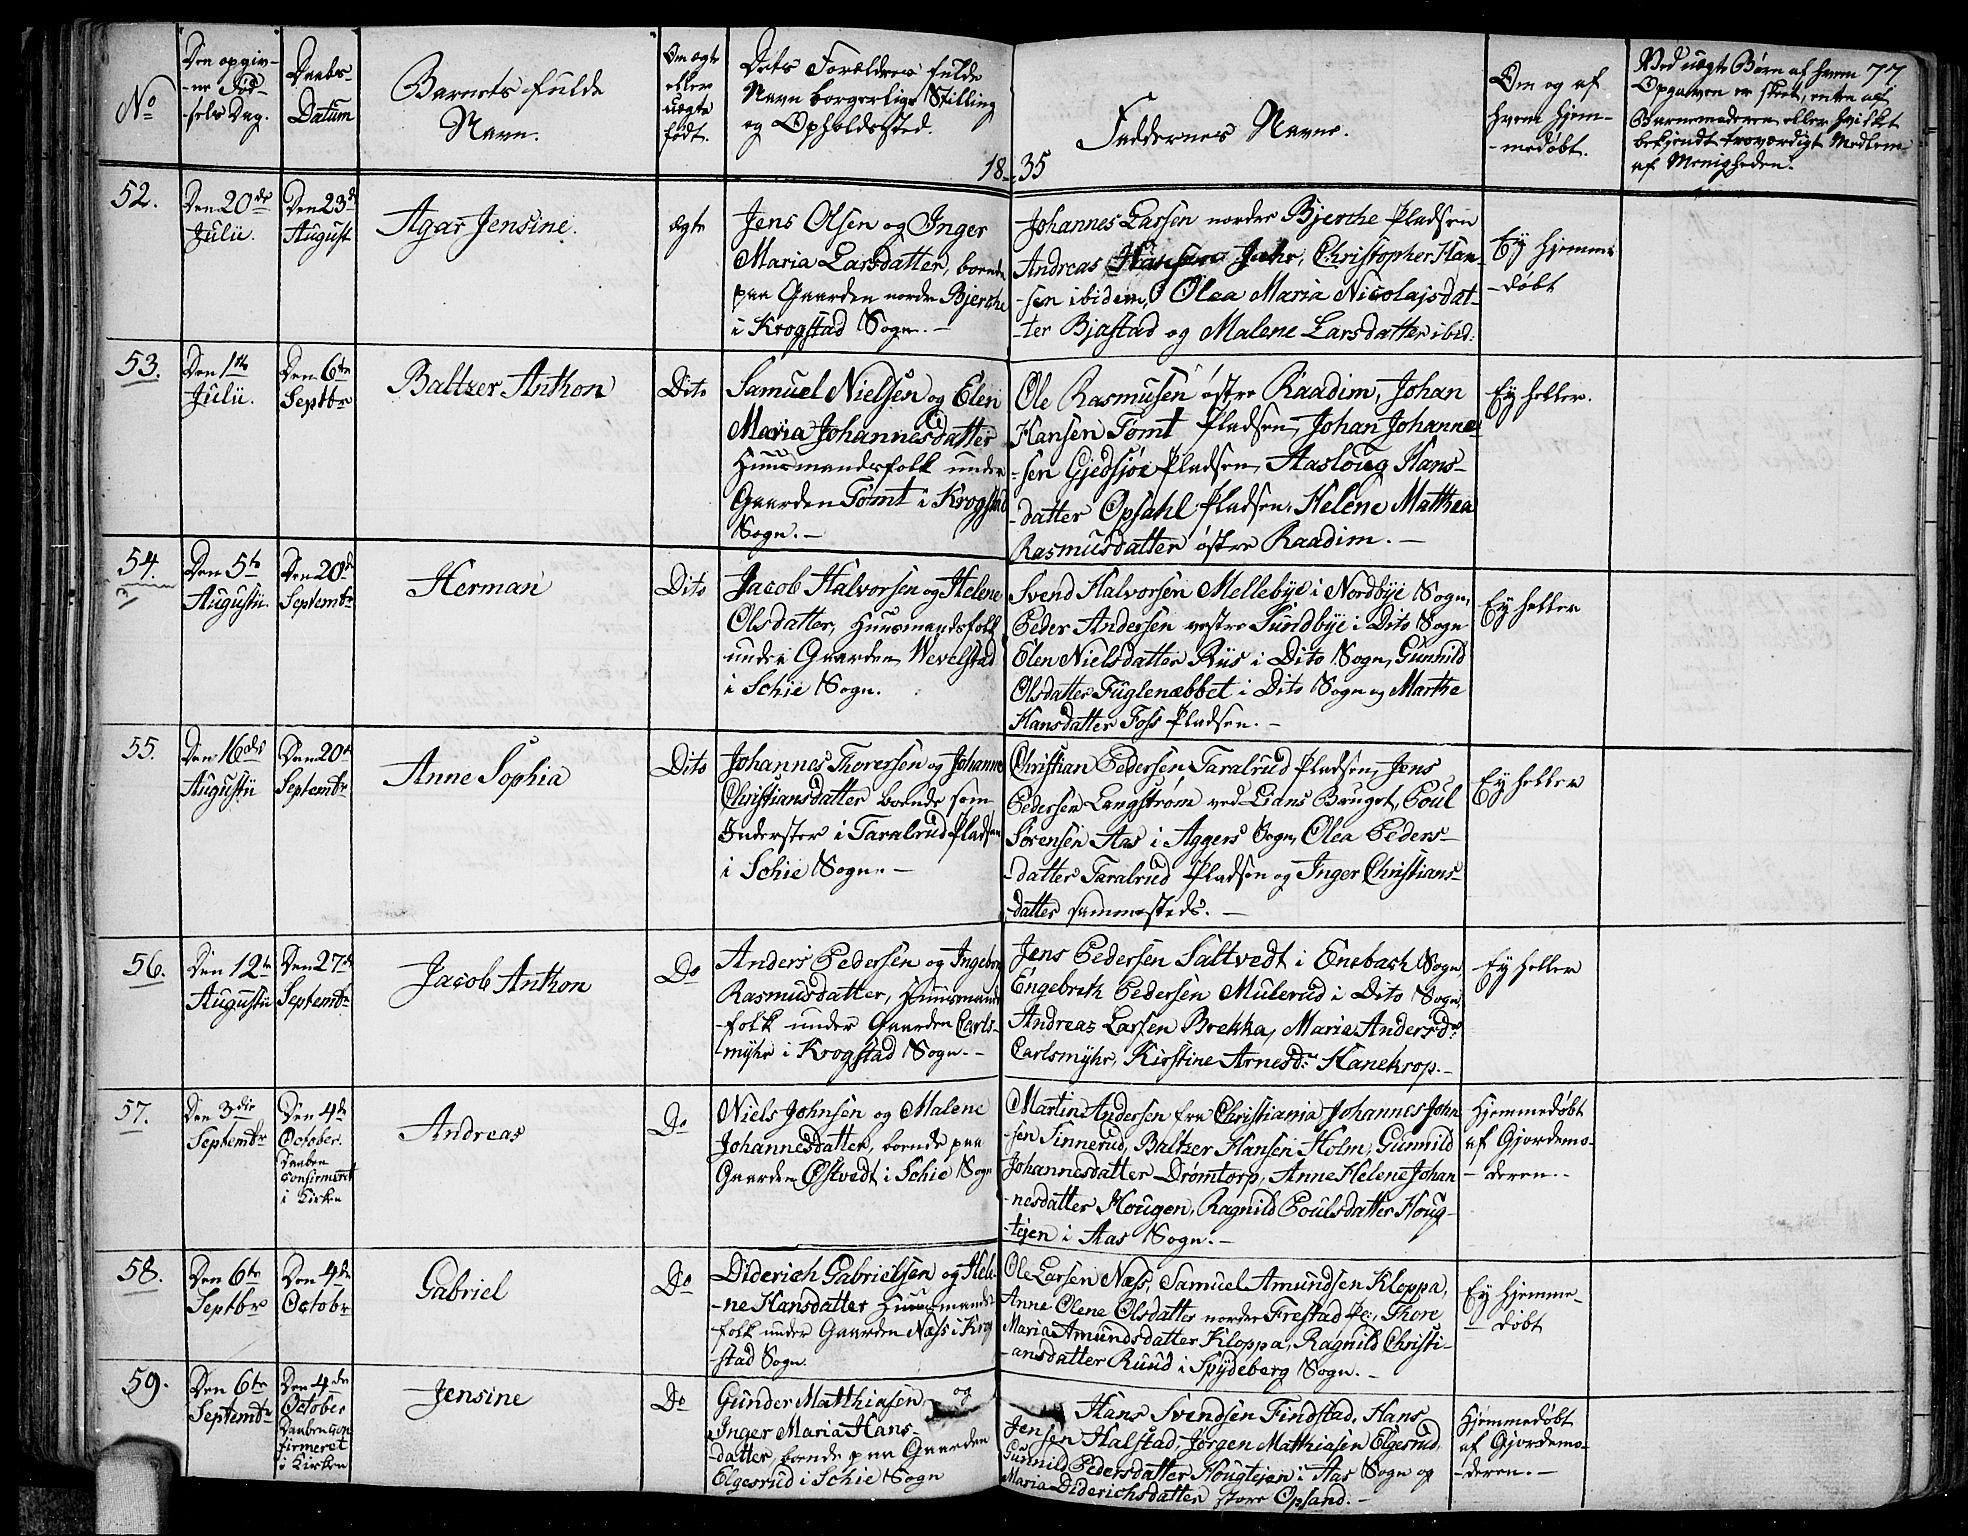 No
Den opgiv-
-ne Fød-
-sels Dag.
Daabs-
Datum
Barnets fulde
Navn.
Om ægte
eller
uægte
født.
Dets Forældres fulde
Navn borgerlige Stilling
og Opholdssted.
Faddernes Navne.
Om og af
hvem hjem-
-medøbt.
Ved uægte Børn af hvem
Opgaven er skeet, enten af
Barnemoderen eller hvilket
bekjendt troværdigt Medlem
af Menigheden.
77
18 35
52.
Den 20de
Julii.
Den 23d
August
Agar Jensine.
ægte
Jens Olsen og Inger
Maria Larsdatter, boende
paa Gaarden nordre Bjerche
i Krogstad Sogn. -
Johannes Larsen nordre Bjerche Pladsen
Andreas Hansen Jahr, Christopher Han-
-sen ibidem, Olea Maria Nicolajsdat-
-ter Bjastad og Malene Larsdatter ibid:
Ey hjemme
-døbt
53.
Den 1ste
Julii.
Den 6te
Septbr
Baltzer Anthon
Dito
Samuel Nielsen og Elen
Maria Johannesdatter
Huusmandsfolk under
Gaarden Tømt i Krogstad
Sogn. -
Ole Rasmusen østre Raadim, Johan
Hansen Tømt Pladsen, Johan Johanne-
-sen Gjedsjøe Pladsen, Aasloug Hans-
-datter Opsahl Pladsen, Helene Mathea
Rasmusdatter østre Raadim. -
Ey heller.
54.
Den 5te
Augustii.
Den 20d
Septembr
Herman
Dito
Jacob Halvorsen og Helene
Olsdatter, Huusmandsfolk
under Gaarden Wevelstad
i Schie Sogn.
Svend Halvorsen Mellebye i Nordbye Sogn,
Peder Andersen vestre Sundbye i Dito Sogn
Elen Nielsdatter Riis i Dito Sogn, Gunnild
Olsdatter Fuglenæbbet i Dito Sogn og Marthe
Hansdatter Foss Pladsen. -
Ey heller
55.
Den 16de
Augustii
Den 20d
Septembr
Anne Sophia
Dito
Johannes Thoversen og Johanne
Christiansdatter boende som
Inderster i Taralrud Pladsen
i Schie Sogn. -
Christian Pedersen Taralrud Pladsen, Jens
Pedersen Langstrøm ved Lians Bruget, Poul
Sørensen Aas i Aggers Sogn, Olea Peders-
-datter Taralrud Pladsen og Inger Christians-
-datter sammesteds. -
Ey heller
56.
Den 12te
Augustii
Den 27d
Septembr
Jacob Anthon
Do
Anders Pedersen og Ingeborg
Rasmusdatter, Huusmands-
-folk under Gaarden Carls-
-myhr i Krogstad Sogn. -
Jens Pedersen Saltvedt i Enebach Sogn,
Engebrith Pedersen Mulerud i Dito Sogn,
Andreas Larsen Brekka, Marie Andersdr
Carlsmyhr, Kirstine Arnesdr Hanekrop. -
Ey heller
57.
Den 3die
Septembr
Den 4de
October.
Daaben
confirmeret
i Kirken
Andreas
Do
Niels Johnsen og Malene
Johannesdatter, boende paa
Gaarden Østvedt i Schie Sogn
Martin Andersen fra Christiania, Johannes John
-sen Sinnerud, Baltzer Hansen Holm, Gunnild
Johannesdatter Drømtorp, Anne Helene Johan
-nesdatter Hougen, Ragnild Poulsdatter Houg-
-tejen i Aas Sogn. -
Hjemmedøbt
af Gjordemo-
-deren. -
58.
Den 6te
Septbr
Den 4de
Octobr
Gabriel
Do
Diderich Gabrielsen og Hele-
-ne Hansdatter Huusmands-
folk under Gaarden Næss i Krog
-stad Sogn.
Ole Larsen Næss, Samuel Amundsen Kloppa,
Anne Olene Olsdatter nordre Frestad Pl, Thore
Maria Amundsdatter Kloppa, Ragnild Christi-
-ansdatter Ruud i Spydeberg Sogn. -
Ey hjemme-
-døbt
59.
Den 6te
Septembr
Den 4de
October
Daaben con
firmeret
i Kirken
Jensine
Do
Gunder Matthiasen og
Inger Maria Hans-
-datter, boende paa Gaarden
Elgesrud i Schie Sogn
Hans Svendsen Findstad, Hans
Jensen Halstad, Jørgen Matthiasen Elgesrud,
Gunnild Pedersdatter Hougtejen i Aas Sogn og
Maria Diderichsdatter store Opsand. -
Hjemmedøbt
af Gjordemo-
-deren. -